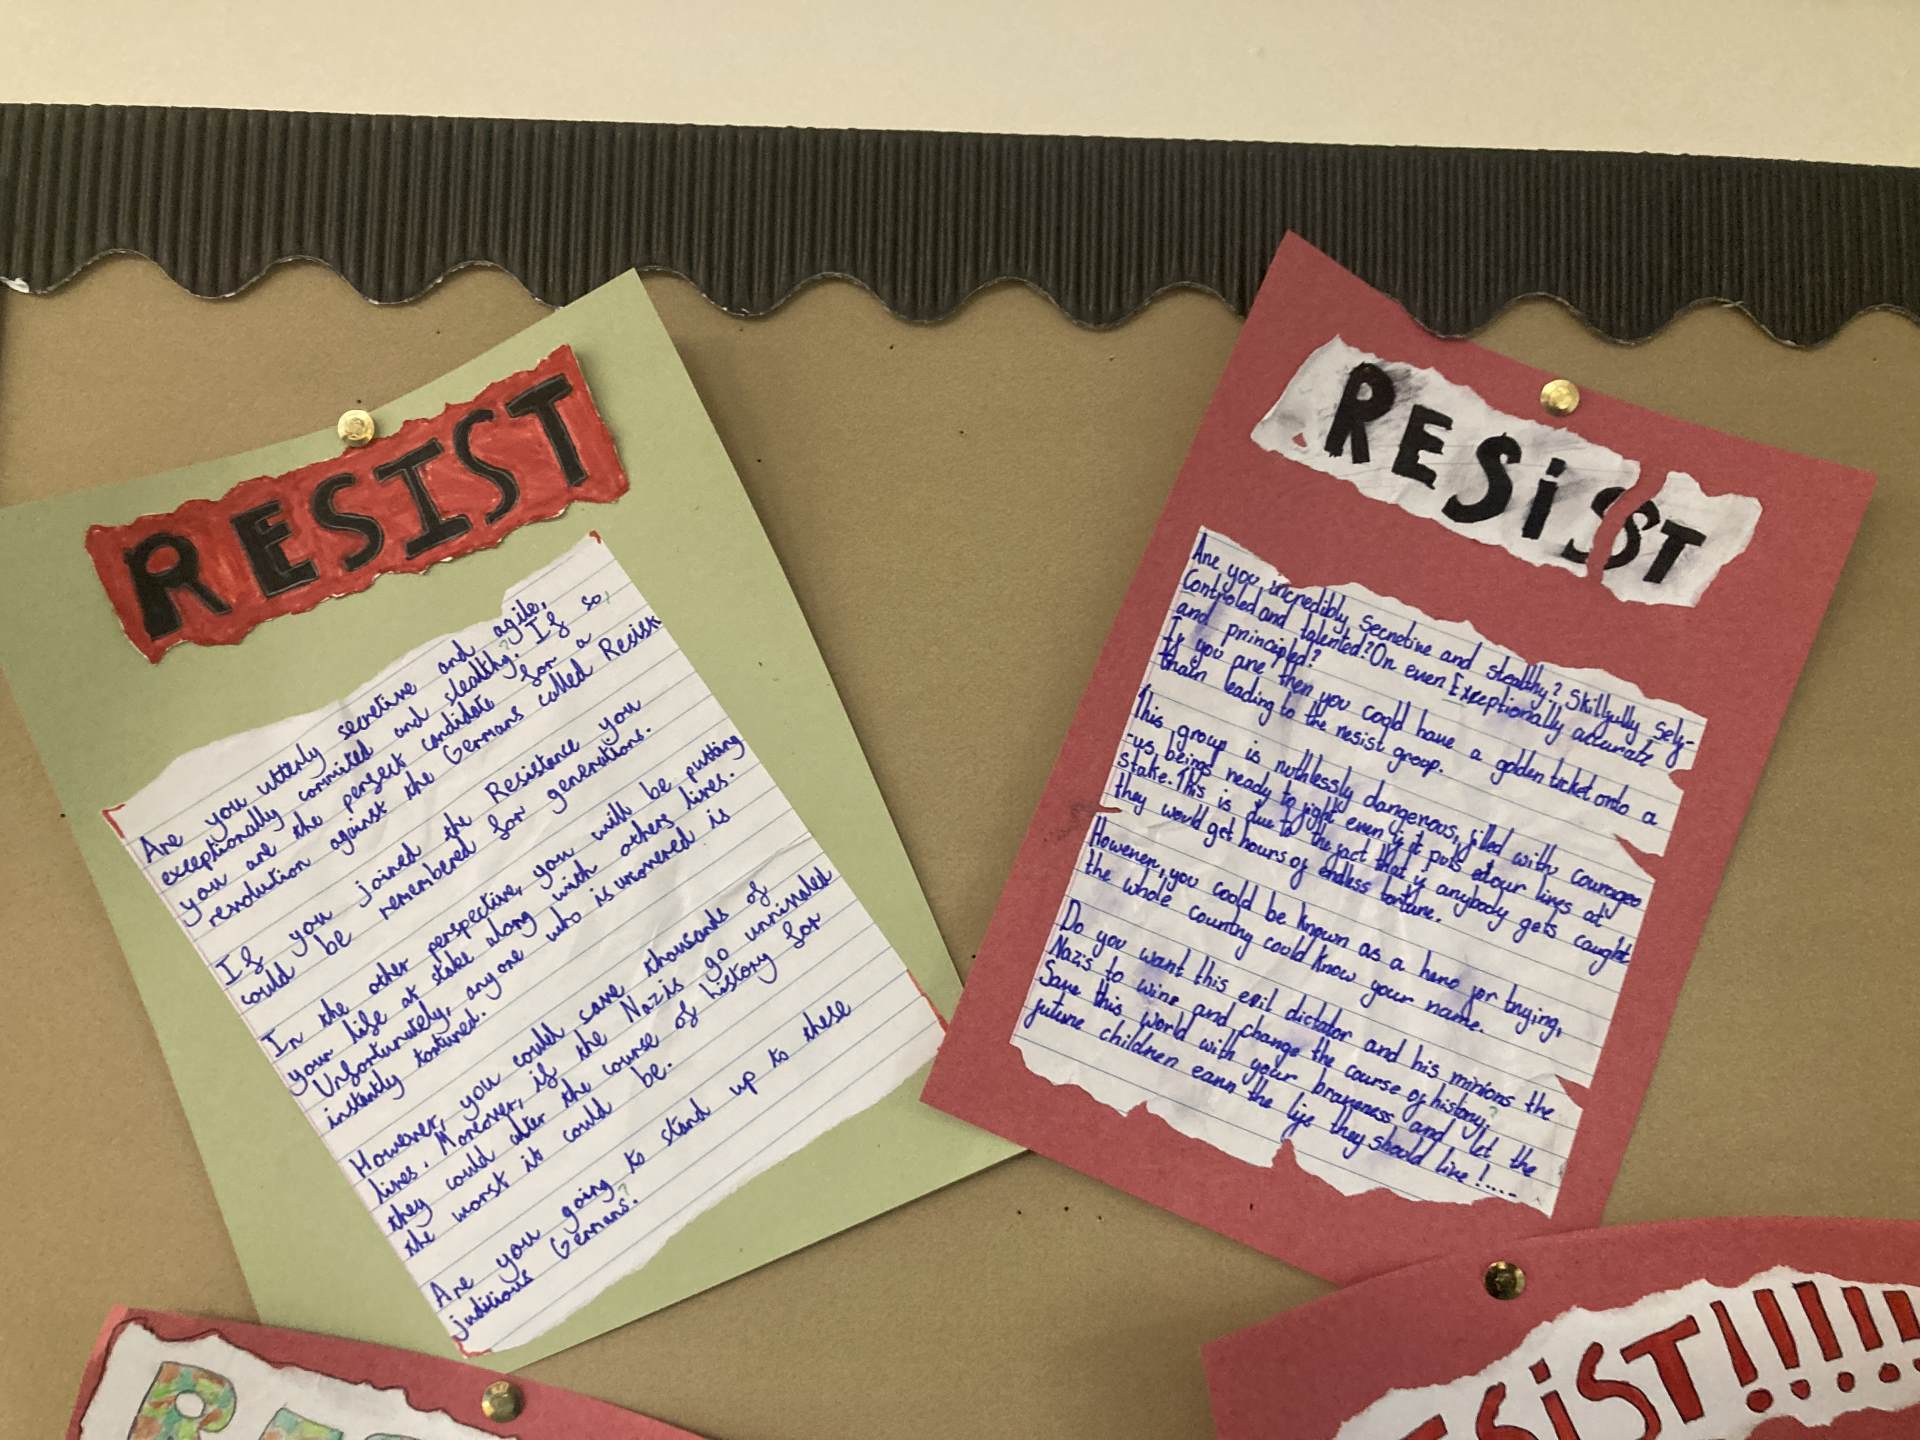 RESIST
Are you utterly secretive and agile,
exceptionally commited and stealthy? If so,
you are the perfect candidate for a
revolution against the Germans called Resist
If you joined the Resistence you
could be remembered for generations.
In the other perspective, you will be putting
your life at stake along with others lives.
Unfortunately, anyone who is uncovered is
instantly tortured.
However, you could save thousands of
lives. Moreover, if the Nazis go unrivaled
they could alter the course of history for
the worst it could be.
Are you going to stand up to these
judicious Germans?
RESiST
Are you incredibly secretive and stealthy? Skillfully self-
Controled and talented? Or even Exceptionally accurate
and principled?
If you are then you coqld have a golden ticket onto a
train leading to the resist group.
This group is ruthlessly dangerous, filled with courageo
-us beings ready to fight even if it puts our lives at
stake. This is due to the fact that if anybody gets caught
they would get hours of endless torture.
However, you could be known as a hero for trying,
the whole country could know your name.
Do you want this evil dictator and his minions the
Nazis to wine and change the course of history?
Save this world with your braveness and let the
future children earn the life they should live!....
RESiST!!!!!